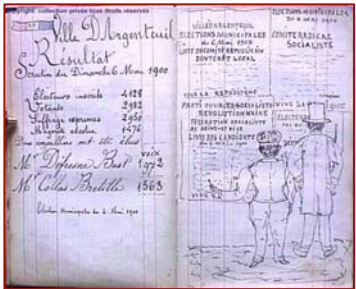 Copyright: collection privée tous droits réservés
Ville D'Argenteuil
Résultat
Scrutin du Dimanche 6 Mai 1900
Electeurs inscrits 4128
Votants
Suffrages exprimés 2950
Majorité absolue 1476
Deux conseillers ont été élus
voix
Mr Defresne Bast 1972
Mr Collas Bretelle 1563
Election Municipales du 6 Mai 1900
VILLE D'ARGENTEUIL
ELECTIONS MUNICIPALES
du 6 Mai 1900
LISTE DU COMITÉ REPUBLICAIN
D'INTERET LOCAL
ELECTIONS MUNICIPALES
DU 6 MAI 1900
COMITE RADICAL
SOCIALISTE
VIVE LA REPUBLIQUE
PARTI OUVRIER SOCIALISTE
REVOLUTIONNAIRE
FEDERATION SOCIALISTE
DE SEINE-ET-OISE
LISTE DES CANDIDATS
VIVE LA
ELECTEURS
VIVE